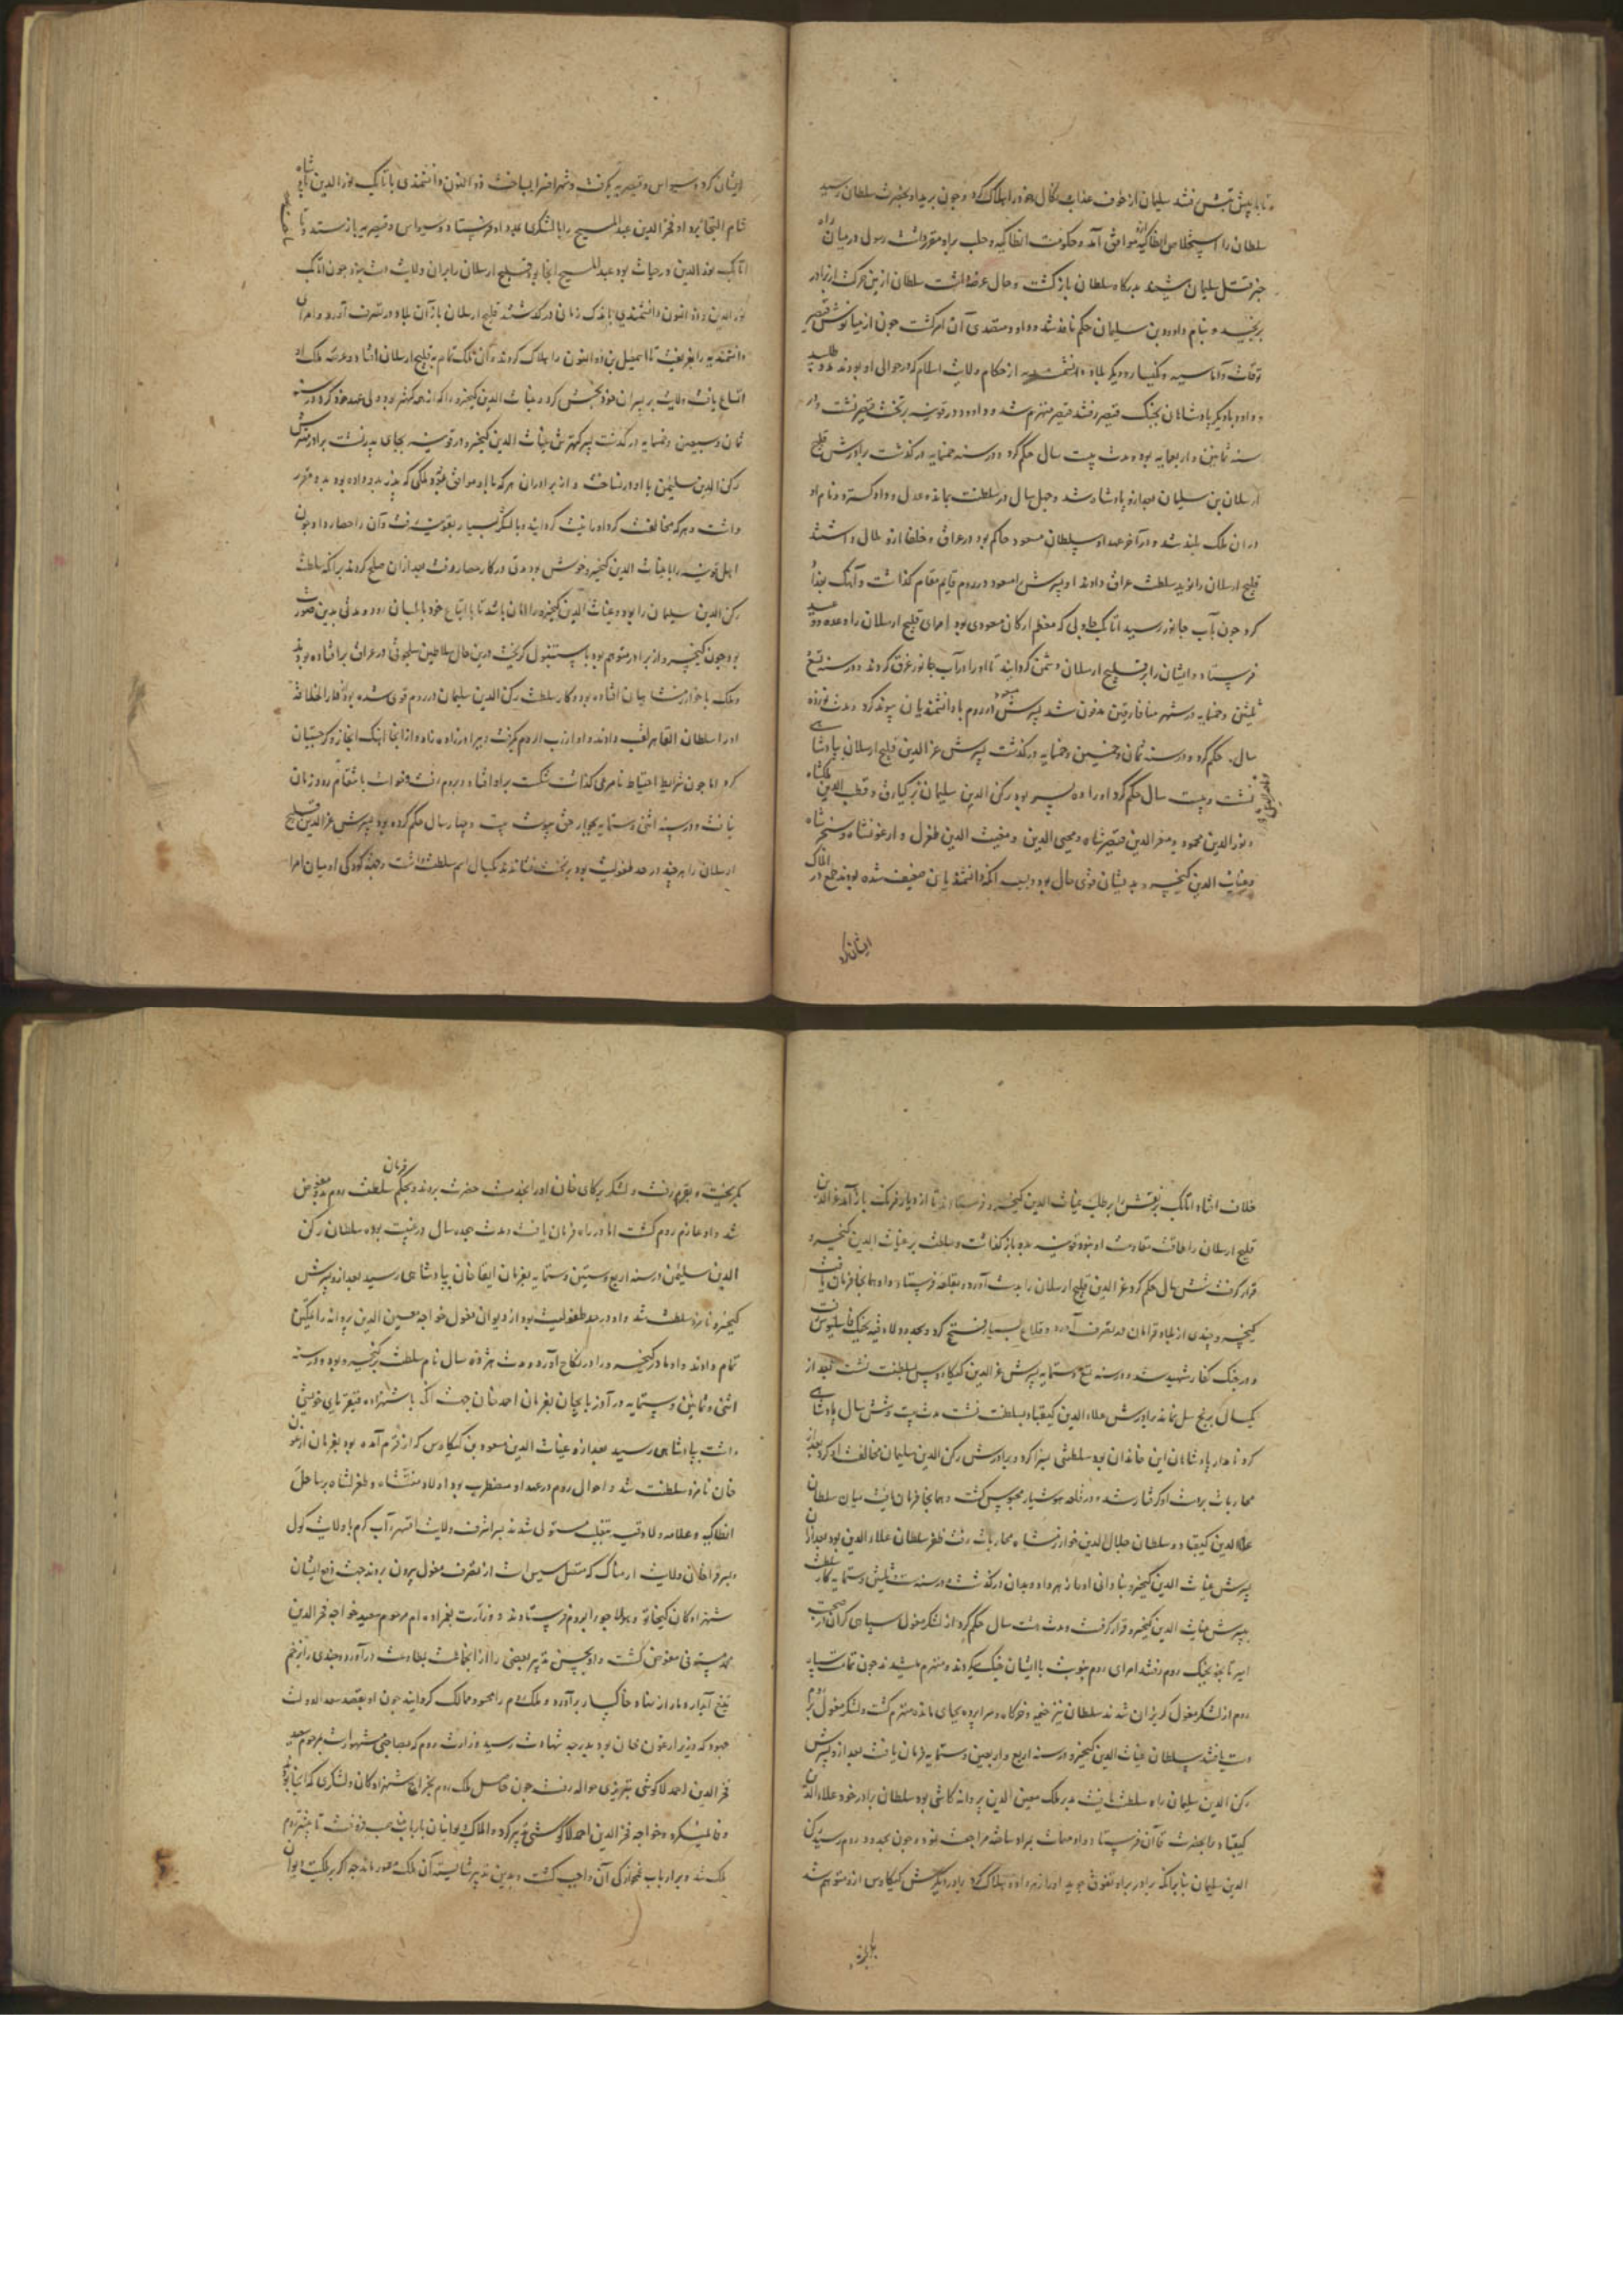 تا با پیش تتش رفتند سلیمان از خوف عذاب و نکال خود را هلاک کرد و چون برید او بحضرت سلطان رسید
سلطان را استخلاص انطاکیه موافق آمد و حکومت انطاکیه و حلب برو مقرر داشت رسول در میان راه
خبر قتل سلیمان شنید بدرگاه سلطان بازگشت و حال عرضه داشت سلطان ازین حرکت از برادر
برنجید و بنام داود بن سلیمان حکم نافذ شد و داود متصدی آن امر گشت چون از میانوش قیصر
توقات و آماسیه و نکیسار و دیگر بلاد دانشمندیه از حکام ولایت اسلام که در حوالی او بودند مدد طلبید
و داود با دیگر پادشاهان بجنگ قیصر رفتند قیصر منهزم شد و داود در قونیه بر تخت قیصر نشست در
سنه ثمانین و اربعمایه بود و مدت بیست سال حکم کرد و در سنه خمسمایه درگذشت برادرش قلج
ارسلان بن سلیمان بعد ازو پادشاه شد و چهل سال در سلطنت بماند و عدل و داد گسترد و نام او
در آن ملک بلند شد و در آخر عهد او سلطان مسعود حاکم بود در عراق و خلفا ازو ملال داشتند
قلج ارسلان را نوید سلطنت عراق دادند او پسرش را مسعود در روم قایم مقام گذاشت و آهنگ بغداد
کرد چون بآب خابور رسید اتابک چاولی که معظم ارکان مسعودی بود امرای قلج ارسلان را وعده و وعید
فرستاد و ایشان را بر قلج ارسلان دشمن گردانید تا او را در آب خابور غرق کردند در سنه تسع
ثلثین و خمسمایه در شهر میافارقین مدفون شد پسرش مسعود در روم با دانشمندیان پیوند کرد و مدت نوزده
سال حکم کرد و در سنه ثمان و خمسین و خمسمایه درگذشت پسرش عز الدین قلج ارسلان بپادشاهی
نشست و بیست سال حکم کرد او را ده پسر بود رکن الدین سلیمان ترکیارق و قطب الدین ملکشاه
و نور الدین محمود و معز الدین قیصر شاه و محیی الدین و مغیث الدین طغرل و ارغونشاه و سنجر شاه
و غیاث الدین کیخسرو بدیشان قوی حال بود و بسبب آنکه دانشمندیان ضعیف شده بودند طمع در املاک
ایشان کرد
ایشان کرد و سیواس و قیصریه بگرفت و شهر اقسرا بساخت ذو النون دانشمندی با تابک نور الدین شاه
شام التجا نمود او فخر الدین عبد المسیح را با لشکری بمدد او فرستاد و سیواس و قیصریه باز ستد و تا
اتابک نور الدین در حیات بود عبد المسیح آنجا بود قلج ارسلان را بر آن ولایت دست نبود چون اتابک
نور الدین و ذو النون دانشمندی باندک زمان درگذشتند قلج ارسلان باز آن بلاد در تصرف آورد و امرای
دانشمندیه را بفریفت تا اسمعیل بن ذو النون را هلاک کردند و آن ملک تمام بر قلج ارسلان افتاد و عرصه ملک او
اتساع یافت ولایت بر پسران خود بخش کرد و غیاث الدین کیخسرو را که از همه کهتر بود ولی عهد خود کرد در سنه
ثمان و سبعین و خمسمایه درگذشت پسر کهترش غیاث الدین کیخسرو در قونیه بجای پدر نشست برادر مهترش
رکن الدین سلیمن با او در نساخت و از برادران هر که با او موافق بود ملکی که پدر بدو داده بود بدو مقرر
داشت و هر که مخالفت کرد او را نیست گردانید و با لشکر بسیار بقونیه رفت و آن را حصار داد چون
اهل قونیه را با غیاث الدین کیخسرو خوش بود مدتی در کار حصار رفت بعد از آن صلح کردند بر آنکه سلطنت
رکن الدین سلیمان را بود و غیاث الدین کیخسرو را امان باشد تا با اتباع خود بابلستان رود و مدتی بدین صورت
بود چون کیخسرو از برادر متوهم بود باستنبول گریخت درین حال سلاطین سلجوقی در عراق بر افتاده بودند
و ملک با خوارزمشاهیان افتاده بود و کار سلطنت رکن الدین سلیمان در روم قوی شده بود از دار الخلافه
او را سلطان القاهر لقب دادند و او ارزن الروم بگرفت و ببرادرزاده داد و از آنجا آهنگ ابخاز و گرجستان
کرد اما چون شرایط احتیاط نامرعی گذاشت شکست برو افتاد و بروم رفت و خواست بانتقام رود زمان
نیافت و در سنه اثنی و ستمایه بجوار حق پیوست بیست و چهار سال حکم کرده بود پسرش عز الدین قلج
ارسلان را هر چند در حد طفولیت بود بر تخت نشاندند یکسال اسم سلطنت داشت و بجهت کودکی او میان امرا
خلاف افتاد اتابک برنقش را بطلب غیاث الدین کیخسرو فرستادند تا از دیار فرنگ باز آمد عز الدین
قلج ارسلان را طاقت مقاومت او نبود قونیه بدو باز گذاشت و سلطنت بر غیاث الدین کیخسرو
قرار گرفت شش سال حکم کرد عز الدین قلج ارسلان را بدست آورد و بقلعه فرستاد و او همانجا فرمان یافت
کیخسرو چندی از بلاد قرامان در تصرف آورد و قلاع بسیار فتح کرد و بحدود لادقیه بجنگ فاسلیوس رفت
و در جنگ کفار شهید شد در سنه تسع و ستمایه پسرش عز الدین کیکاوس بسلطنت نشست بعد از
یکسال برنج سل نماند برادرش علاء الدین کیقباد بسلطنت نشست مدت بیست و شش سال پادشاهی
کرد نامدار پادشاهان این خاندان بود سلطنتی بسزا کرد و برادرش رکن الدین سلیمان مخالفت او کرد بعد از
محاربات بر دست او گرفتار شد و در قلعه هوشیار محبوس گشت و همانجا فرمان یافت میان سلطان
علاء الدین کیقباد و سلطان جلال الدین خوارزمشاه محاربات رفت ظفر سلطان علاء الدین بود بعد از آن
پسرش غیاث الدین کیخسرو بنادانی او را زهر داد و بدان درگذشت در سنه ست و ثلثین و ستمایه کار سلطنت
بپسرش غیاث الدین کیخسرو قرار گرفت و مدت هشت سال حکم کرد از لشکر مغول سپاهی گران در صحبت
امیر تایجو بجنگ روم رفتند امرای روم بنوبت با ایشان جنگ کردند و منهزم میشدند چون تمامت سپاه
روم از لشکر مغول گریزان شدند سلطان نیز خیمه و خرگاه و سراپرده بجای مانده منهزم گشت و لشکر مغول بر روم
دست یافتند سلطان غیاث الدین کیخسرو در سنه اربع و اربعین و ستمایه فرمان یافت بعد ازو پسرش
رکن الدین سلیمان راه سلطنت یافت مدبر ملک معین الدین پروانه کاشی بود سلطان برادر خود علاء الدین
کیقباد را بحضرت قاآن فرستاد و او مهمات بمراد ساخته مراجعت نمود و چون بحدود روم رسید رکن
الدین سلیمان بنا بر آنکه برادر براه تفوق جوید او را زهر داده هلاک کرد برادر دیگرش کیکاوس ازو متوهم شد
بگریخت
بگریخت و بقرم رفت و لشکر برکای خان او را بخدمت حضرت بردند و بحکم فرمان سلطنت روم بدو مفوض
شد و او عازم روم گشت اما در راه فرمان یافت و مدت هجده سال در غیبت بود سلطان رکن
الدین سلیمن در سنه اربع و ستین و ستمایه بفرمان ابقا خان بپادشاهی رسید بعد ازو پسرش
کیخسرو نامزد سلطنت شد و او در حد طفولیت بود از دیوان مغول خواجه معین الدین پروانه را تمکین
تمام دادند و او مادر کیخسرو را در نکاح آورد و مدت هژده سال نام سلطنت بر کیخسرو بود و در سنه
اثنی و ثمانین و ستمایه در آذربایجان بفرمان احمد خان جهت آنکه با شهزاده قنقرتای خویشی
داشت بپادشاهی رسید بعد ازو غیاث الدین مسعود بن کیکاوس که از قرم آمده بود بفرمان ارغون
خان نامزد سلطنت شد و احوال روم در عهد او مضطرب بود اولاد منتشاه و طغرلشاه بر ساحل
انطالیه و علائیه و لادقیه بتغلب مستولی شدند پسر اشرف ولایت اقشهر و آب گرم با ولایت کول
و پسر قرامان ولایت ارمناک که متصل سیس است از تصرف مغول بیرون بردند جهت دفع ایشان
شهزادگان کیخاتو و هولاجو را بروم فرستادند و وزارت بعم زاده ام مرحوم سعید خواجه فخر الدین
محمد مستوفی مفوض گشت و او بحسن تدبیر بعضی را از آن جماعت بطاوعت درآورد و چندی را بزخم
تیغ آبدار دمار از نهاد خاکسار برآورد و ملک روم را محسود ممالک گردانید چون او بقصد سعد الدوله
جهود که وزیر ارغون خان بود بدرجه شهادت رسید وزارت روم که بصاحبی مشهور است بمرحوم سعید
فخر الدین احمد لاکوشی تبریزی حواله رفت چون حاصل ملک روم بخراج شهزادگان و لشکری که آنجا بودند
وفا نمیکرد خواجه فخر الدین احمد لاکوشی تدبیر کرد و املاک دیوانیان بارباب بحسب فروخت تا بیشتر روم
ملک شد و بر ارباب غمخوارگی آن واجب گشت و بدین تدبیر شایسته آن ملک معمور ماند چه اگر بر ملکیت دیوان